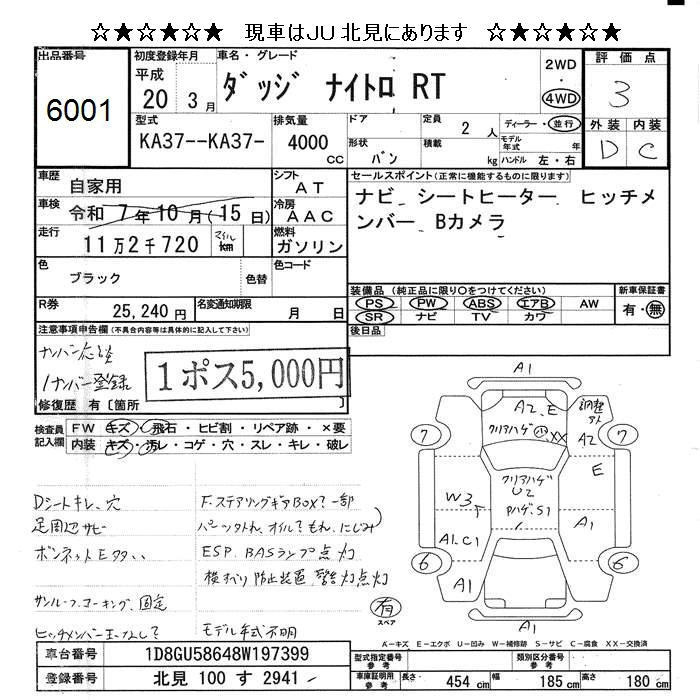 ☆★☆★☆★ 現車はJU北見にあります ☆★☆★☆★
出品番号 6001
初度登録年月 平成 20 3月
車名・グレード ダッジ ナイトロ RT
2WD ・ 4WD
評価点 3
外装 D 内装 C
型式 KA37--KA37-
排気量 4000 cc
ドア 形状 バン
定員 2 人
積載 kg
ディーラー・並行
モデル年式 年
ハンドル 左・右
車歴 自家用
シフト AT
車検 令和 7年10月(15日)
冷房 AAC
走行 11万2千720 マイル km
燃料 ガソリン
色 ブラック 色替
色コード
R券 25,240円
名変通知期限 月 日
セールスポイント(正常に機能するものに限ります)
ナビ シートヒーター ヒッチメ
ンバー Bカメラ
装備品 (純正品に限り○をつけてください)
PS PW ABS エアB AW
SR ナビ TV カワ
新車保証書 有・無
後日品
注意事項申告欄(不具合内容等は具体的に記入して下さい)
ナンバー応談
1ナンバー登録
1ポス5,000円
修復歴 有〔箇所 〕
検査員記入欄
FW キズ・飛石・ヒビ割・リペア跡・×要
内装 キズ・汚レ・コゲ・穴・スレ・キレ・破レ
Dシートキレ、穴
足周辺サビ
ボンネットE多い
サンルーフ、コーキング、固定
F.ステアリングギアBOX?一部
オイル?もれ、にじみ
ESP、BASランプ点灯
横すべり防止装置、警告灯点灯
モデル年式不明
A1
A2、E
クリアハゲ 小 XX
調整 A2
7 7
クリアハゲ U2
Pハゲ、S1
E
W3
A1
A1、C1
6 6
A1
A1
有 スペア
A-キズ E-エクボ U-凹み W-補修跡 S-サビ C-腐食 XX-交換済
車台番号 1D8GU58648W197399
登録番号 北見 100 す 2941
型式指定番号 参考
類別区分番号 参考
車庫証明用 参考 長さ 454 cm 幅 185 cm 高さ 180 cm